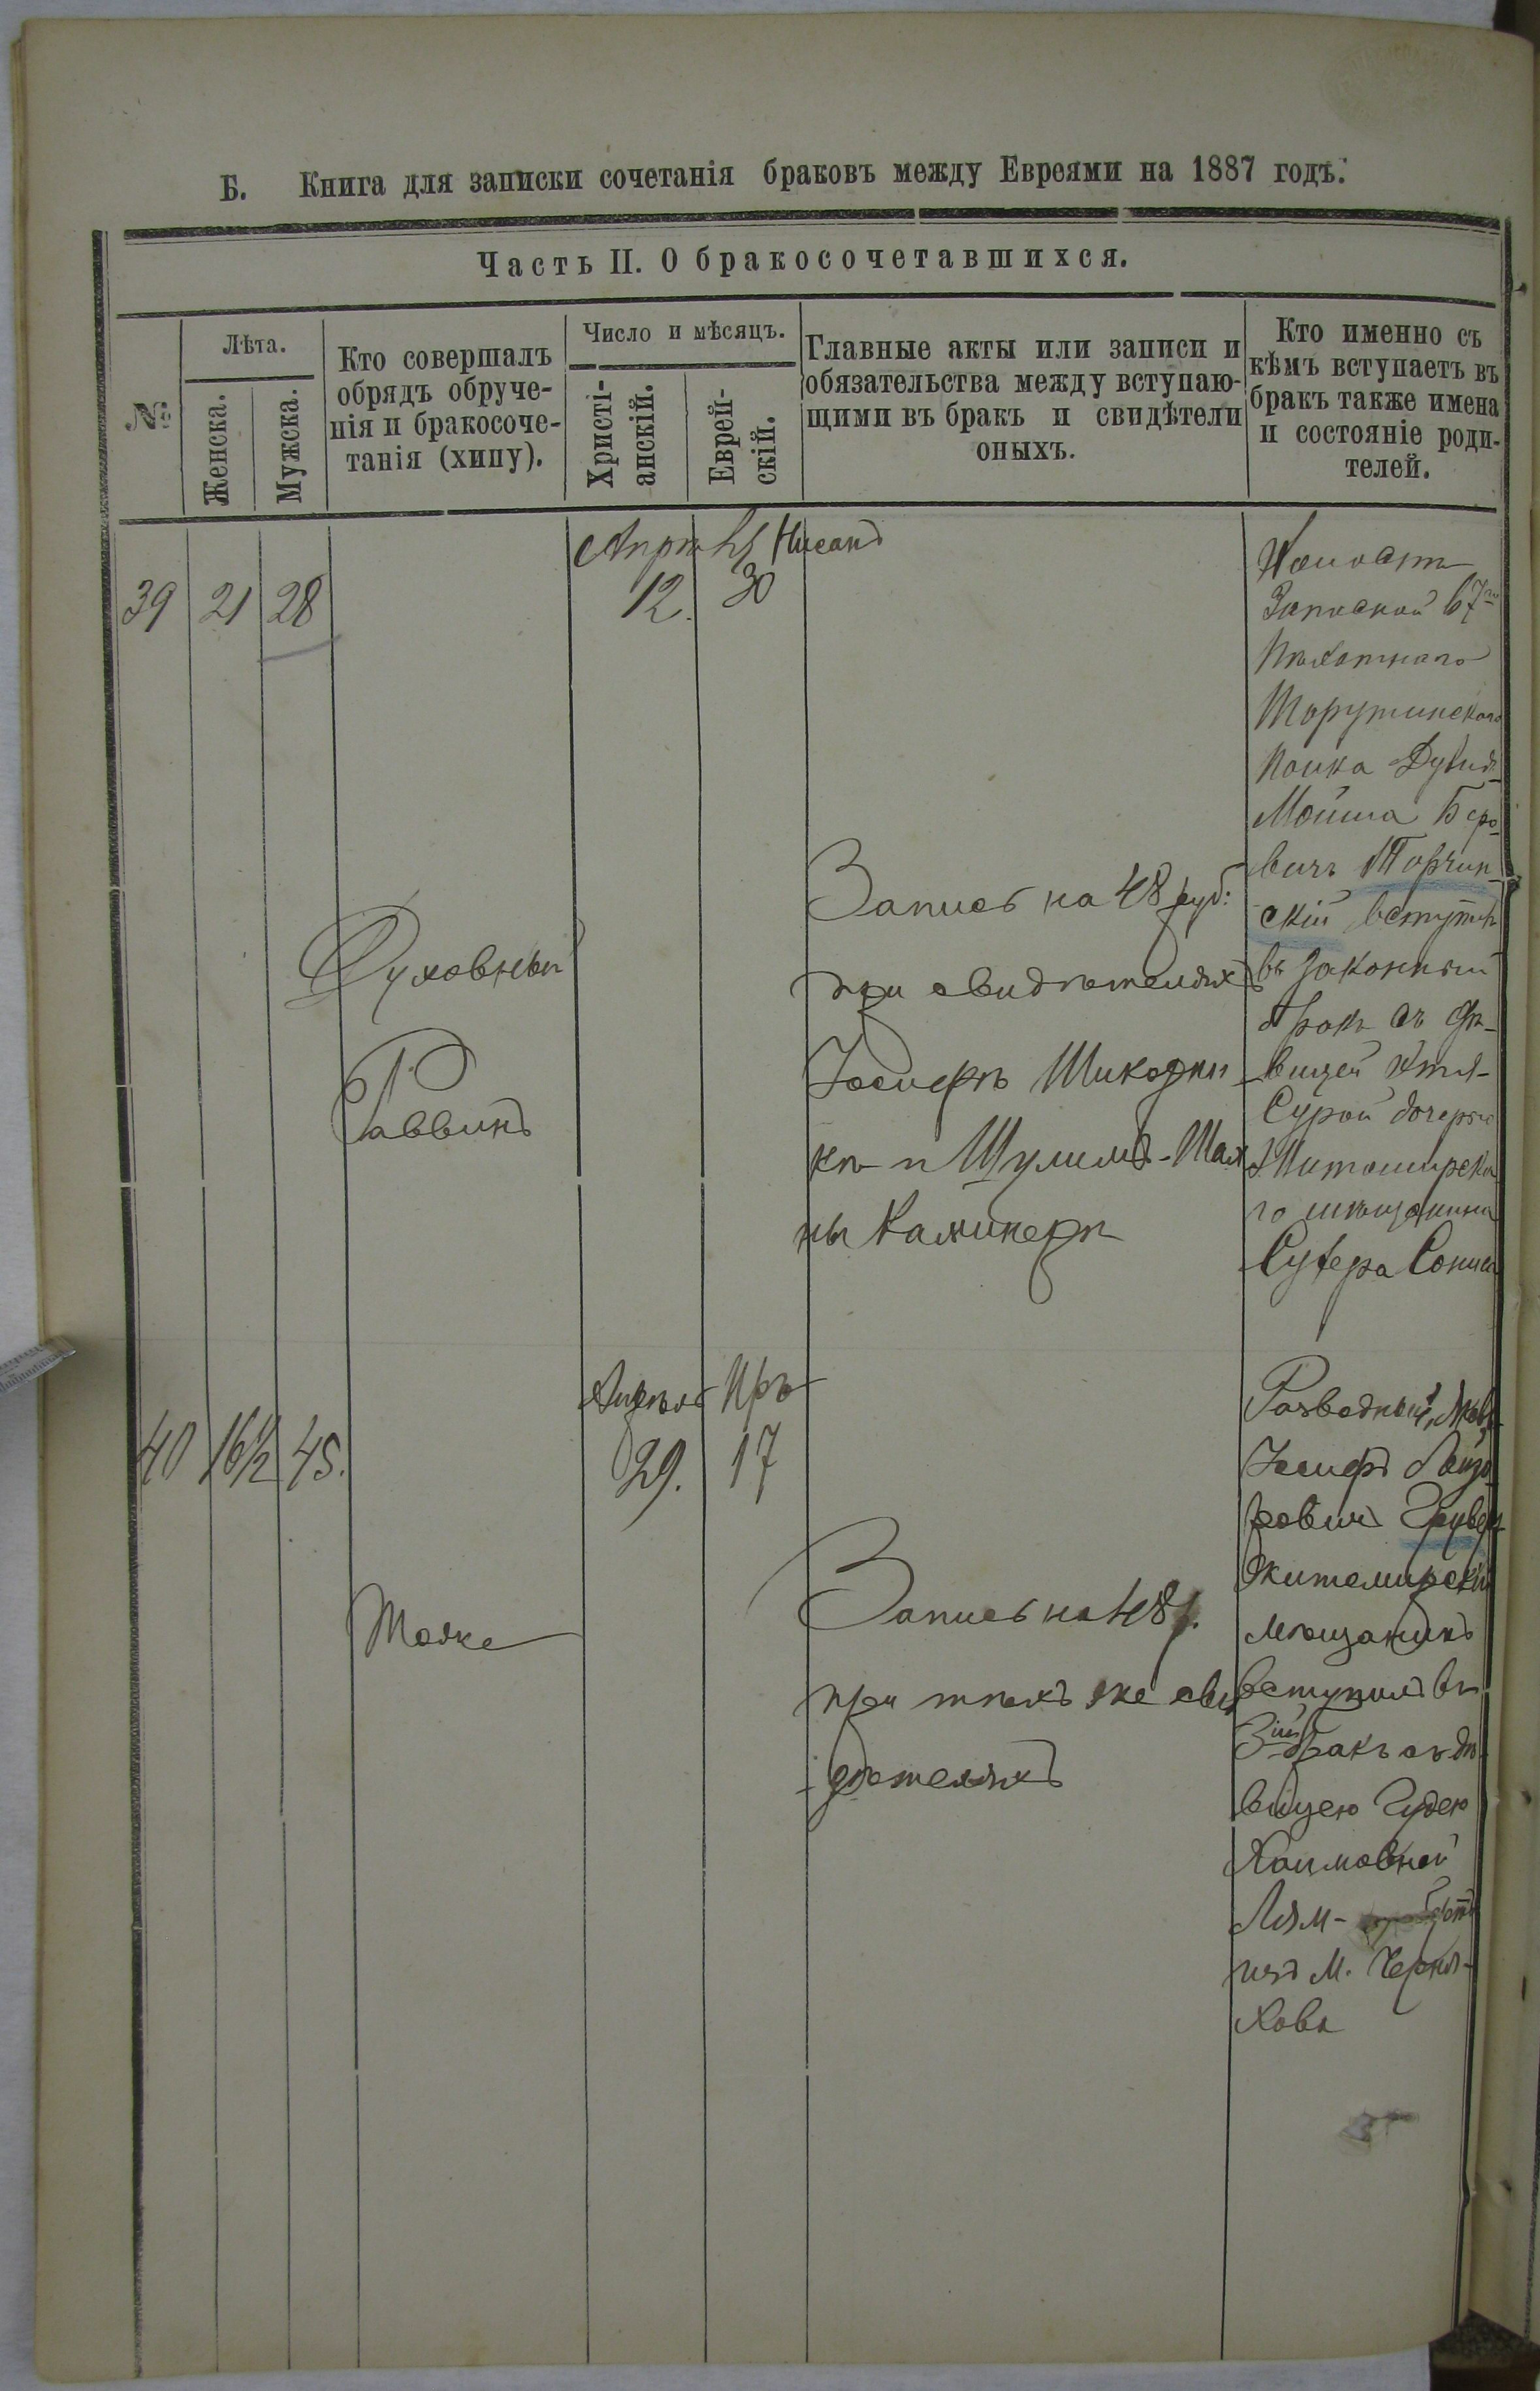 Б. Книга для записки сочетанія браковъ между Евреями на 1887 годъ.
Часть II. О бракосочетавшихся.
№
Лѣта.
Женска.
Мужска.
Кто совершалъ
обрядъ обруче-
нія и бракосоче-
танія (хипу).
Число и мѣсяцъ.
Христі-
анскій.
Еврей-
скій.
Главные акты или записи и
обязательства между вступаю-
щими въ бракъ и свидѣтели
оныхъ.
Кто именно съ
кѣмъ вступаетъ въ
бракъ также имена
и состояніе роди-
телей.
39 21 28
Духовный
Раввинъ
Апрѣль Нисанъ
12. 30
Запись на 48 руб:
при свидѣтеляхъ
Іосифъ
и Шулимъ-
Запасной 67
Пѣхотнаго
Тарутинскаго
полка Дувид-
Мойша Беро-
вичъ Торчин-
скій вступилъ
въ законный
бракъ съ дѣ-
вицей
Сурой дочерью
Житомирска-
го мѣщанина
40 16½ 45.
Тоже
Апрѣль Иръ
29. 17
Запись на 48 р.
при тѣхъ же сви
дѣтеляхъ
Разводный,
Іосифъ Лейзо-
ровичъ
Житомирскій
мѣщанинъ
вступилъ въ
3ій бракъ съ дѣ-
вицею Гудею
Хаимовной
Лям-
изъ М. Черня-
хова